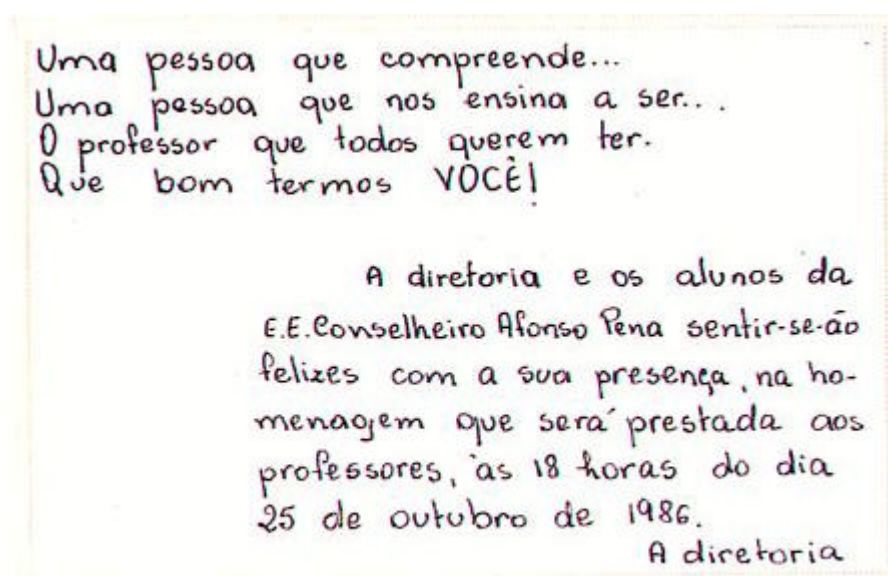 Uma pessoa que compreende...
Uma pessoa que nos ensina a ser...
O professor que todos querem ter.
Que bom termos VOCÊ!
A diretoria e os alunos da
E.E. Conselheiro Afonso Pena sentir-se-ão
felizes com a sua presença, na ho-
menagem que será prestada aos
professores, às 18 horas do dia
25 de outubro de 1986.
A diretoria